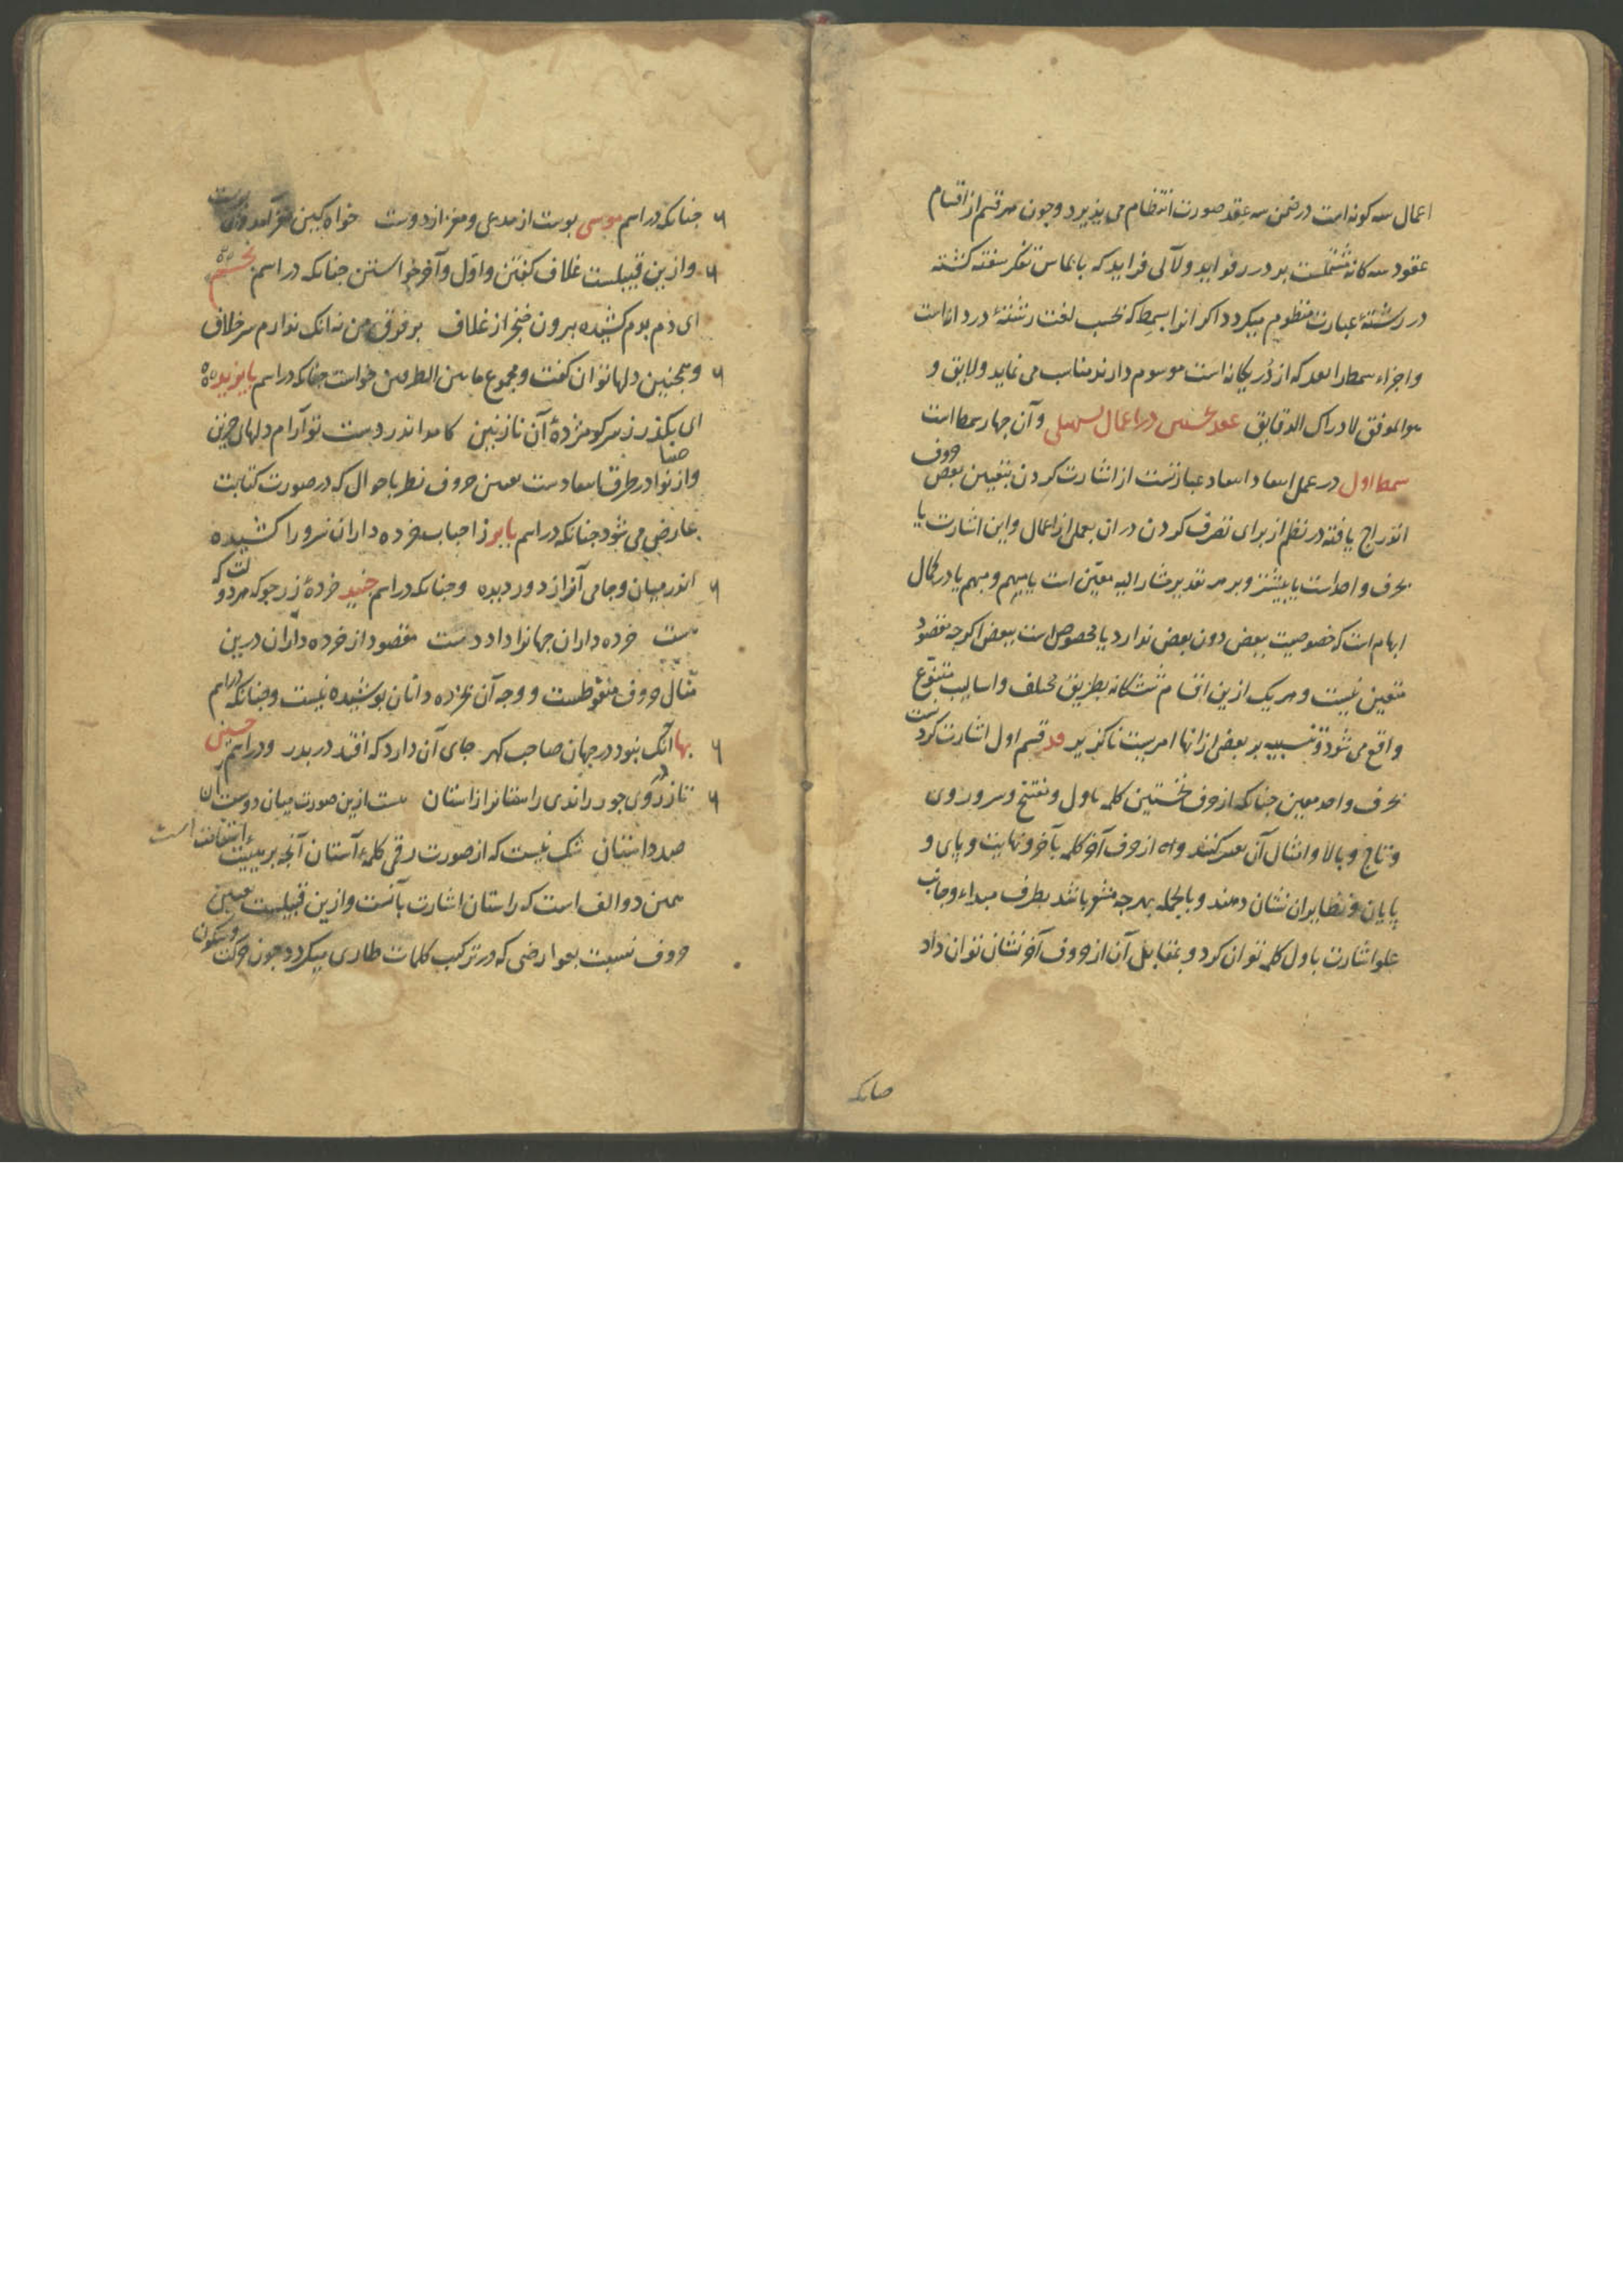 اعمال سه کونه است در ضمن سه عقد صورت انتظام می پذیرد و چون هر قسم از اقسام
عقود سه کانه مشتملست بر درر فواید و لآلی فراید که بالماس تفکر سفته کشته
در رشتهٔ عبارت منظوم میکردد اکر انرا بسمط که بحسب لغت رشتهٔ درد اناست
و اجزاء سمط را بعد که از در یکانه است موسوم دارند مناسب می نماید و لایق و
هو الموفق لادراک الدقایق عقد نخستین در اعمال تسهیلی و آن چهار سمط است
سمط اول در عمل انتقاد انتقاد عبارتست از اشارت کردن بتعیین بعض حروف
اندراج یافته در نظم از برای تصرف کردن در ان بعملی از اعمال و این اشارت یا
بحرف واحد است یا بیشتر و بر هر تقدیر مشار الیه معین است یا مبهم و مبهم یا در کمال
ابهام است که خصوصیت ببعض دون بعض ندارد یا مخصوص است ببعض اکرچه مقصود
متعین نیست و هر یک ازین اقسام ششکانه بطریق مختلف و اسالیب متنوع
واقع می شود و تنبیه بر بعض از انها امریست ناکزیر در قسم اول اشارت کردنست
بحرف واحد معین چنانکه از حرف نخستین کلمه باول و مفتتح و سر و روی
و تاج و بالا و امثال آن تعبیر کنند و از حرف آخر کلمه بآخر و نهایت و پای و
پایان و نظایر ان نشان دهند و بالجمله بهر چه مشعر باشد بطرف مبداء و جانب
علو اشارت باول کلمه توان کرد و بمقابل آن از حروف آخر نشان توان داد
چنانکه
چنانکه در اسم موسی پوست از مدعی و مغز از دوست خواه کین نغز آمد و آن
و ازین قبیلست غلاف کفتن و اول و آخر خواستن چنانکه در اسم
ای دم بدم کشیده برون خنجر از غلاف بر فرق من نه انک ندارم سر خلاف
و همچنین دلها توان کفت و مجموع مابین الطرفین خواست چنانکه در اسم بایزید
ای بکذر ز سر کو مژدهٔ آن نازنین کامد اندر دست تو آرام دلهای حزین
و از نوادر طرق انتقادست تعیین حروف نظر باحوال که در صورت کتابت
عارض می شود چنانکه در اسم بابر ز احباب خرده داران سرو را کشیده
اندر میان و جامی آنرا ز دور دیده و چنانکه در اسم جنید خردهٔ زر جو که هر دولت که
هست خرده داران جهانرا داد دست مقصود از خرده داران درین
مثال حروف منقوطست و وجه آن بر خرده دانان پوشیده نیست و چنانکه در اسم
بها آنک نبود در جهان صاحب کهر جای آن دارد که افتد در بدر و در اسم حسنی
تا ز کوی خود راندی راستانرا ز استان هست ازین صورت میان دوستان
صد داستان شک نیست که از صورت رقمی کلمهٔ آستان آنچه بر هیئت استقامت است
همین دو الف است که راستان اشارت بآنست و ازین قبیلست تعیین
حروف نسبت بعوارضی که در ترکیب کلمات طاری میکردد چون حرکت و سکون